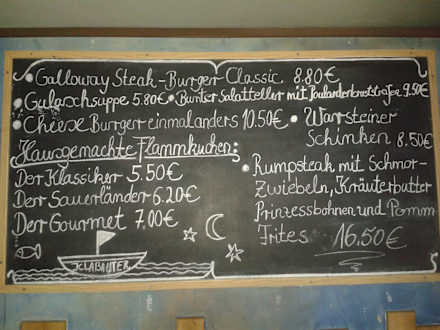 • Galloway Steak-Burger-Classic 8.80€
• Gulaschsuppe 5.80€ • Bunter Salatteller mit Poulardenbruststreifen 9.50€
• Cheese Burger-einmal anders 10.50€
• Warsteiner Schinken 8.50€
Hausgemachte Flammkuchen:
Der Klassiker 5.50€
Der Sauerländer 6.20€
Der Gourmet 7.00€
• Rumpsteak mit Schmor-
Zwiebeln, Kräuterbutter
Prinzessbohnen und Pomm
Frites 16.50€
KLABAUTER